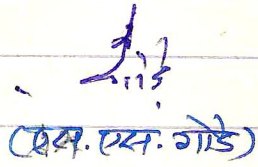 (एस. एस. गोडे)